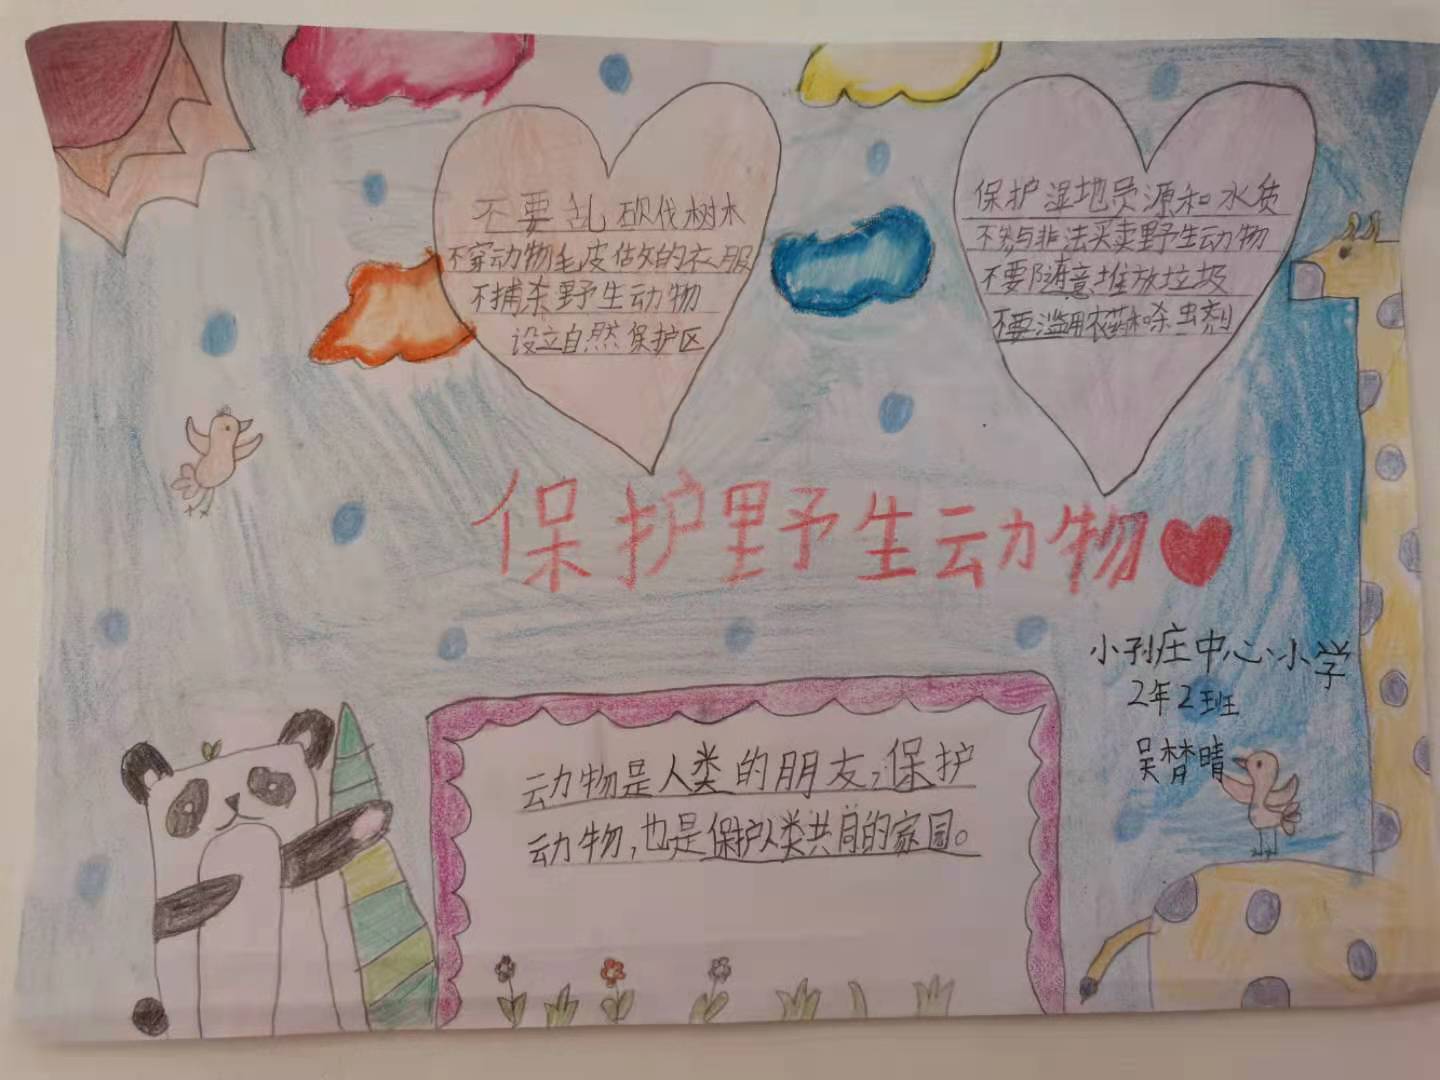 不要乱砍伐树木
不穿动物毛皮做的衣服
不捕杀野生动物
设立自然保护区
保护湿地资源和水质
不参与非法买卖野生动物
不要随意堆放垃圾
不要滥用农药和杀虫剂
保护野生动物
小孙庄中心小学
2年2班
吴梦晴
动物是人类的朋友,保护
动物,也是保护人类共同的家园。